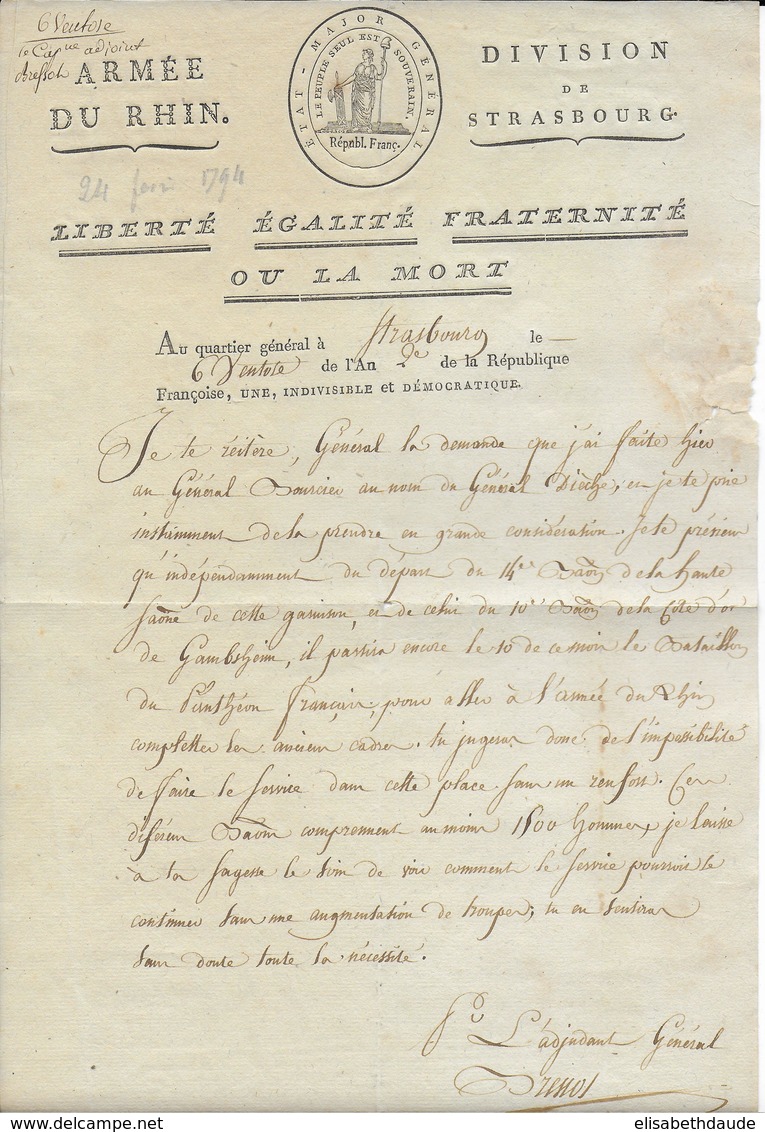 6 Ventose
le Cap.ne adjoint
ARMÉE
DU RHIN.
ÉTAT-MAJOR GÉNÉRAL
LE PEUPLE SEUL EST SOUVERAIN.
Républ. Franç.
DIVISION
DE
STRASBOURG.
24 1794
LIBERTÉ ÉGALITÉ FRATERNITÉ
OU LA MORT
Au quartier général à Strasbourg le —
6 Ventose de l'An 2e de la République
Françoise, UNE, INDIVISIBLE et DÉMOCRATIQUE.
Je te réitère, Général la demande que j'ai faite hier
au Général Bourcier au nom du Général Dièche, et je te prie
instamment de la prendre en grande considération. Je te préviens
qu'indépendamment du départ du 14e Baon de la haute
saône de cette garnison, et de celui du 10e Baon de la Côte d'or
de Gambsheim, il partira encore le 10 de ce mois le Bataillon
du Panthéon français, pour aller à l'armée du Rhin
completter les anciens cadres. tu jugeras donc de l'impossibilité
de faire le service dans cette place sans un renfort. Ces
diférens Baons comprennent au moins 1500 hommes, je laisse
à ta sagesse le soin de voir comment le service pourroit se
continuer sans une augmentation de troupes; tu en sentiras
sans doute toute la nécessité.
Pr L'adjudant Général
elisabethdaude